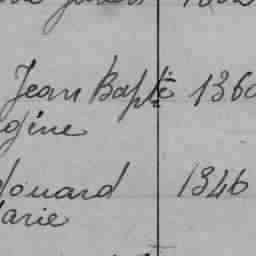 Jean Bapte 1360
gine
douard 1346
arie